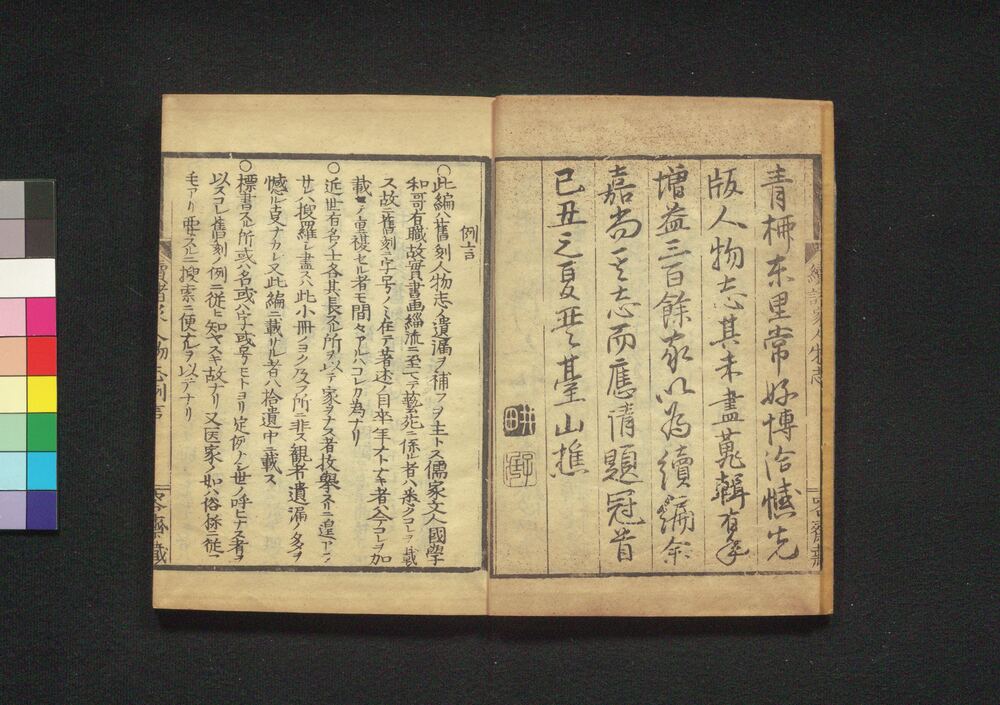 青柳東里常好博洽憾先
版人物志其未盡蒐輯有年
増益三百餘家以為續編余
嘉尚其志而應請題冠首
己丑之夏 臺山樵
例言
○此編ハ舊刻人物志ノ遺漏ヲ補フヲ主トス儒家文人國學
和哥有職故實書画緇流ニ至マテ藝苑ニ係ル者ハ悉クコレヲ載
ス故ニ舊刻ニ字号ノミ在テ著述ノ目卒年ナトナキ者ハ今コレヲ加
載セテ重複セル者モ間々アルハコレカ為ナリ
○近世有名ノ士各其長スル所ヲ以テ家ヲナス者枚擧スルニ遑アラ
サレハ搜羅シ盡スハ此小冊ノヨク及フ所ニ非ス観者遺漏ノ多ヲ
憾ル㕝ナカレ又此編ニ載サル者ハ拾遺中ニ載ス
○標書スル所或ハ名或ハ字或ハ号モトヨリ定例ナシ世ノ呼ヒナス者ヲ
以スコレ舊刻ノ例ニ従ヒ知ヤスキ故ナリ又医家ノ如ハ俗称ニ従フ
モアリ要スルニ搜索ニ便ナルヲ以テナリ